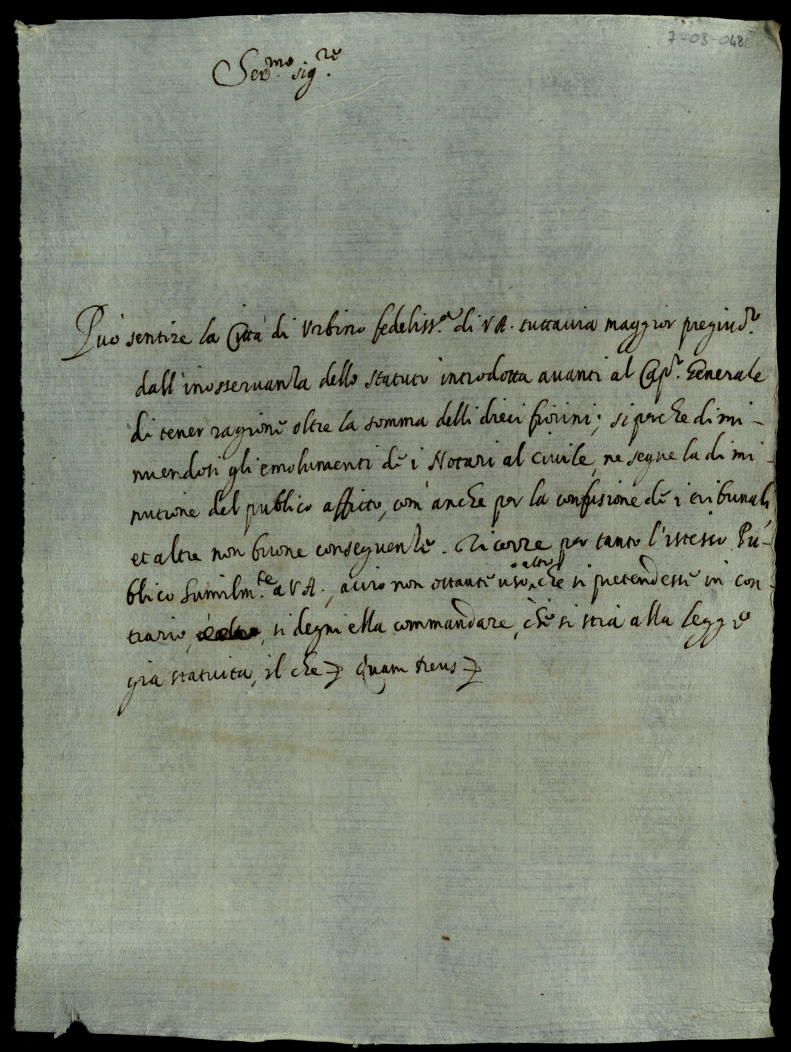 7-03-048
Ser.mo sig.re
Può sentire la Città di Urbino fedeliss.a di V A. tuttauia maggior pregiud.o
dall'inosseruanza dello statuto introdotta auanti al Cap.o Generale
di tener ragione oltre la somma delli dieci fiorini; si perche dimi-
nuendosi gli emolumenti de i Notari al ciuile, ne segue la dimi-
nutione del publico affitto, com'anche per la confusione de i tribunali
et altre non buone conseguenze. Ricorre per tanto l'istesso Pu-
blico humilm.te a V A., acciò non ostante uso, o altro che si pretendesse in con-
trario, si degni ella commandare, che si stia alla legge
già statuita, il che Quam Deus